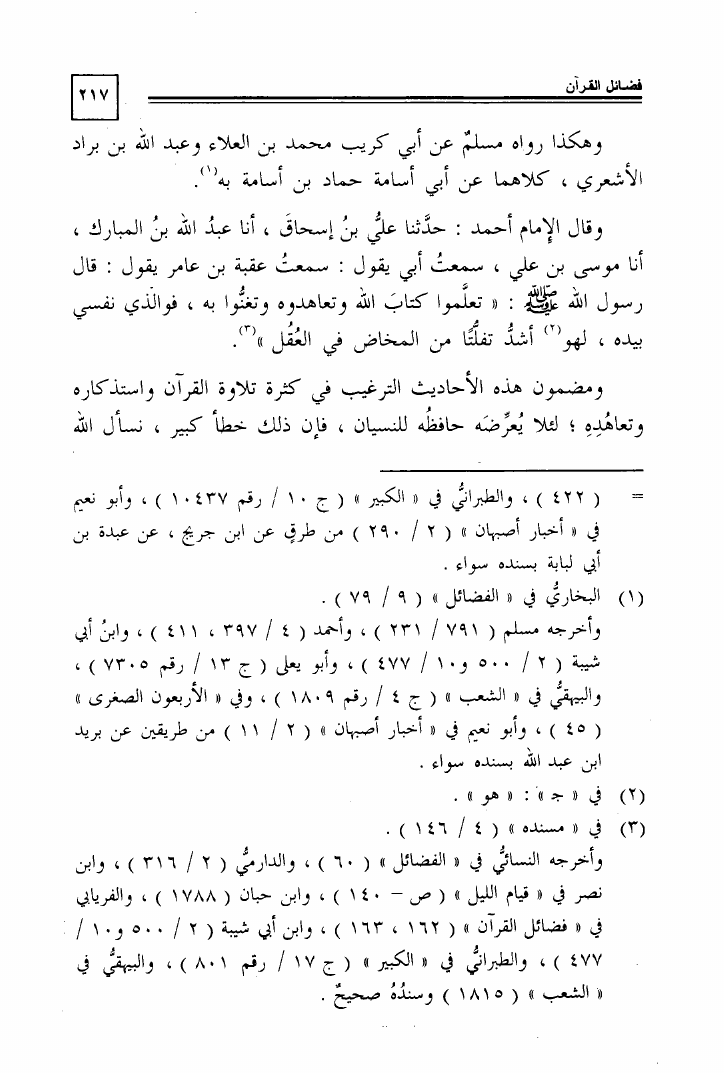 فضائل القرآن
٢١٧
وهكذا رواه مسلمٌ عن أبي كريب محمد بن العلاء وعبد الله بن براد
الأشعري ، كلاهما عن أبي أسامة حماد بن أسامة به(١).
وقال الإمام أحمد : حدَّثنا عليُّ بنُ إسحاقَ ، أنا عبدُ الله بنُ المبارك ،
أنا موسى بن علي ، سمعتُ أبي يقول : سمعتُ عقبة بن عامر يقول : قال
رسول الله ﷺ : « تعلَّموا كتابَ الله وتعاهدوه وتغنُّوا به ، فوالذي نفسي
بيده ، لهو(٢) أشدُّ تفلُّتًا من المخاض في العُقُل »(٣).
ومضمون هذه الأحاديث الترغيب في كثرة تلاوة القرآن واستذكاره
وتعاهُدِهِ ؛ لئلا يُعرِّضَه حافظُه للنسيان ، فإن ذلك خطأ كبير ، نسأل الله
= ( ٤٢٢ ) ، والطبرانيُّ في « الكبير » ( ج ١٠ / رقم ١٠٤٣٧ ) ، وأبو نعيم
في « أخبار أصبهان » ( ٢ / ٢٩٠ ) من طرقٍ عن ابن جريج ، عن عبدة بن
أبي لبابة بسنده سواء .
(١) البخاريُّ في « الفضائل » ( ٩ / ٧٩ ) .
وأخرجه مسلم ( ٧٩١ / ٢٣١ ) ، وأحمد ( ٤ / ٣٩٧ ، ٤١١ ) ، وابنُ أبي
شيبة ( ٢ / ٥٠٠ و١٠ / ٤٧٧ ) ، وأبو يعلى ( ج ١٣ / رقم ٧٣٠٥ ) ،
والبيهقيُّ في « الشعب » ( ج ٤ / رقم ١٨٠٩ ) ، وفي « الأربعون الصغرى »
( ٤٥ ) ، وأبو نعيم في « أخبار أصبهان » ( ٢ / ١١ ) من طريقين عن بريد
ابن عبد الله بسنده سواء .
(٢) في « جـ » : « هو » .
(٣) في « مسنده » ( ٤ / ١٤٦ ) .
وأخرجه النسائيُّ في « الفضائل » ( ٦٠ ) ، والدارميُّ ( ٢ / ٣١٦ ) ، وابن
نصر في « قيام الليل » ( ص - ١٤٠ ) ، وابن حبان ( ١٧٨٨ ) ، والفريابي
في « فضائل القرآن » ( ١٦٢ ، ١٦٣ ) ، وابن أبي شيبة ( ٢ / ٥٠٠ و١٠ /
٤٧٧ ) ، والطبرانيُّ في « الكبير » ( ج ١٧ / رقم ٨٠١ ) ، والبيهقيُّ في
« الشعب » ( ١٨١٥ ) وسندُهُ صحيحٌ .